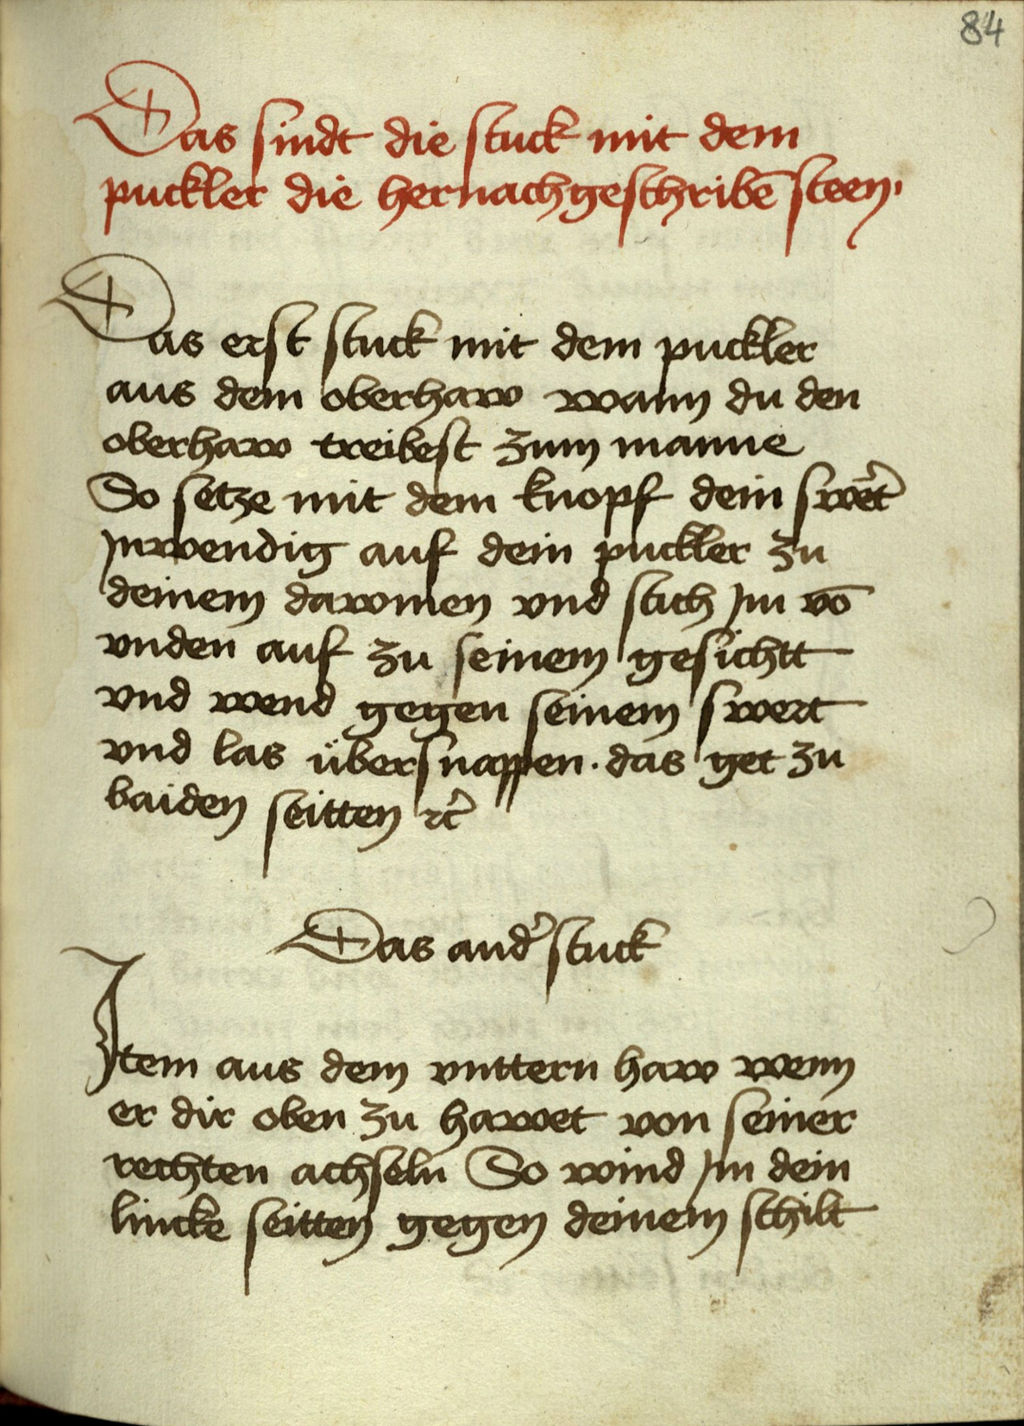 84
Das sindt die stuck mit dem
puckler die hernachgeschribē steen·
Das erst stuck mit dem puckler
aus dem oberhaw wann du den
oberhaw treibest zum manne
So setze mit dem knopf dein swe̓t
Jnwendig auf dein puckler zu
deinem dawmen vnd stich Jm vō
vnden auf zu seinem gesichtt
vnd wend gegen seinem swert
vnd las übersnappen · das get zu
baiden seitten ꝛc̓
Das and̓ stuck
Jtem aus dem vnttern haw wenn
er dir oben zu hawet von seiner
rechten achseln So wind Jm dein
lincke seitten gegen deinem schilt